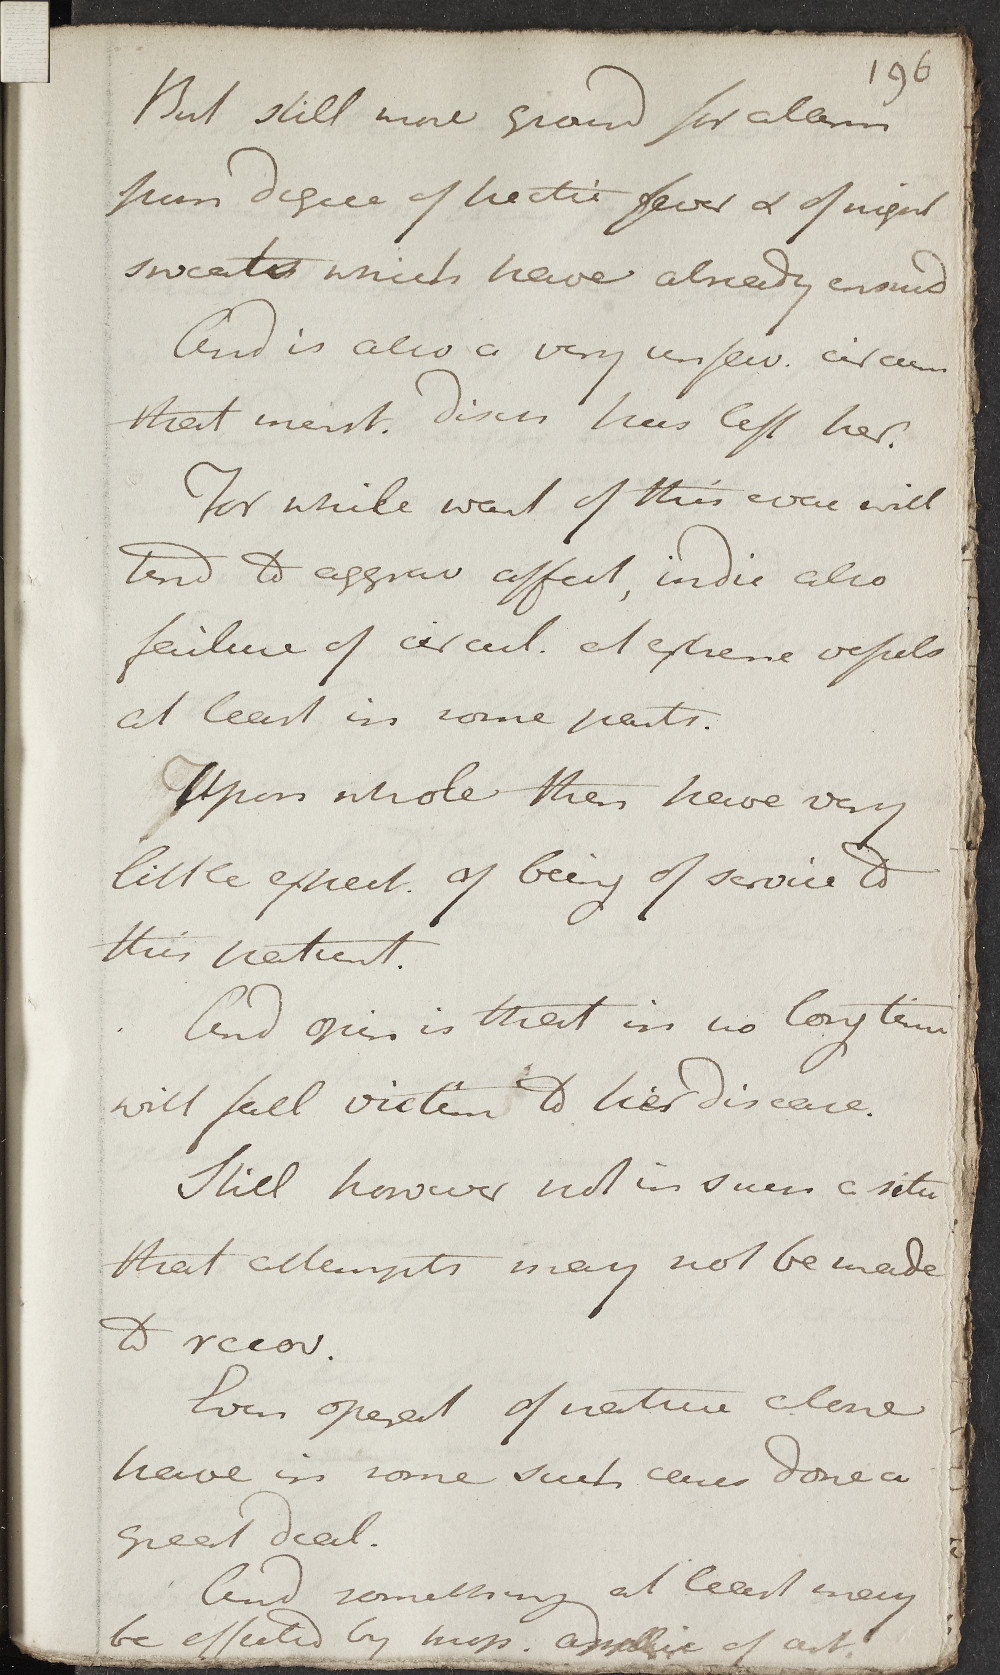 196
But still more ground for alarm
from degree of hectic fever & of night
sweats which have already ensued
And is also a very unfav. circum
that menst. discn has left her.
For while want of this evac will
tend to aggrav affect, indic also
failure of circul. at extreme vessels
at least in some parts.
Upon whole then have very
little expect. of being of service to
this patient.
And opin is that in no long time
will fall victim to her disease.
Still however not in such a situ
that attempts may not be made
to recov.
Even operat of nature alone
have in some such cases done a
great deal.
And something at least may
be effected by of art.